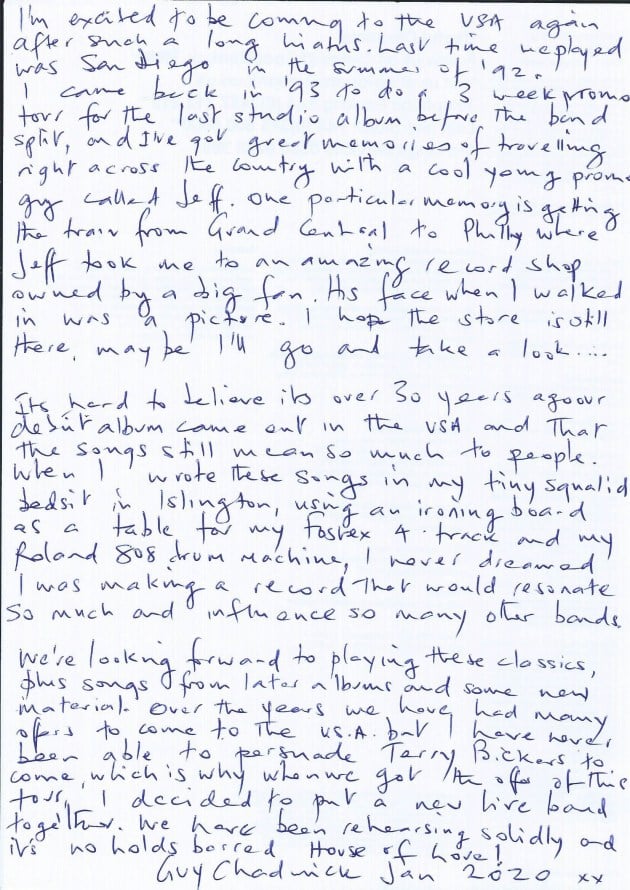 I'm excited to be coming to the USA again
after such a long hiatus. Last time we played
was San Diego in the summer of '92.
I came back in '93 to do a 3 week promo
tour for the last studio album before the band
split, and I've got great memories of travelling
right across the country with a cool young promo
guy called Jeff. One particular memory is getting
the train from Grand Central to Philly where
Jeff took me to an amazing record shop
owned by a big fan. His face when I walked
in was a picture. I hope the store is still
there, maybe I'll go and take a look....
Its hard to believe its over 30 years ago our
debut album came out in the USA and that
the songs still mean so much to people.
When I wrote these songs in my tiny squalid
bedsit in Islington, using an ironing board
as a table for my Fostex 4-track and my
Roland 808 drum machine, I never dreamed
I was making a record that would resonate
so much and influence so many other bands.
We're looking forward to playing these classics,
plus songs from later albums and some new
material. Over the years we have had many
offers to come to the U.S.A. but I have never
been able to persuade Terry Bickers to
come, which is why when we got the offer of this
tour, I decided to put a new live band
together. We have been rehearsing solidly and
it's no holds barred House of Love!
Guy Chadwick Jan 2020 xx